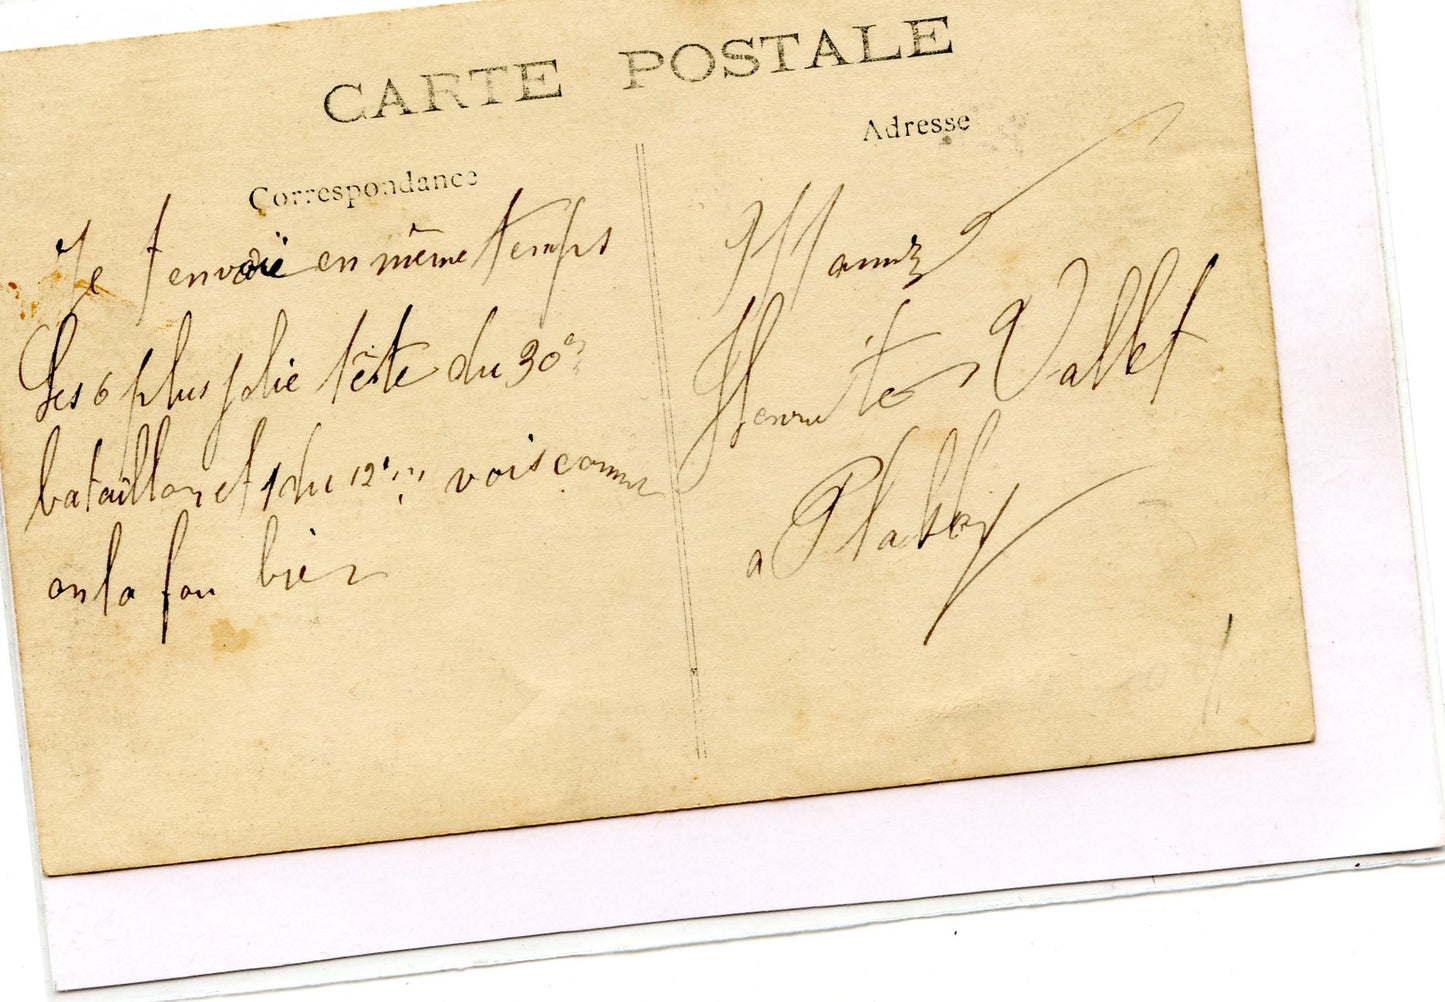 CARTE POSTALE
Correspondance
Je t envoie en même temps
Les 6 plus jolie tête du 30e
bataillon et 1 du 12e vois comme
on la fou bien
Adresse
Vallet
a